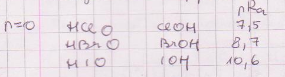 pKa
n=0 HClO ClOH 7,5
HBrO BrOH 8,7
HIO IOH 10,6